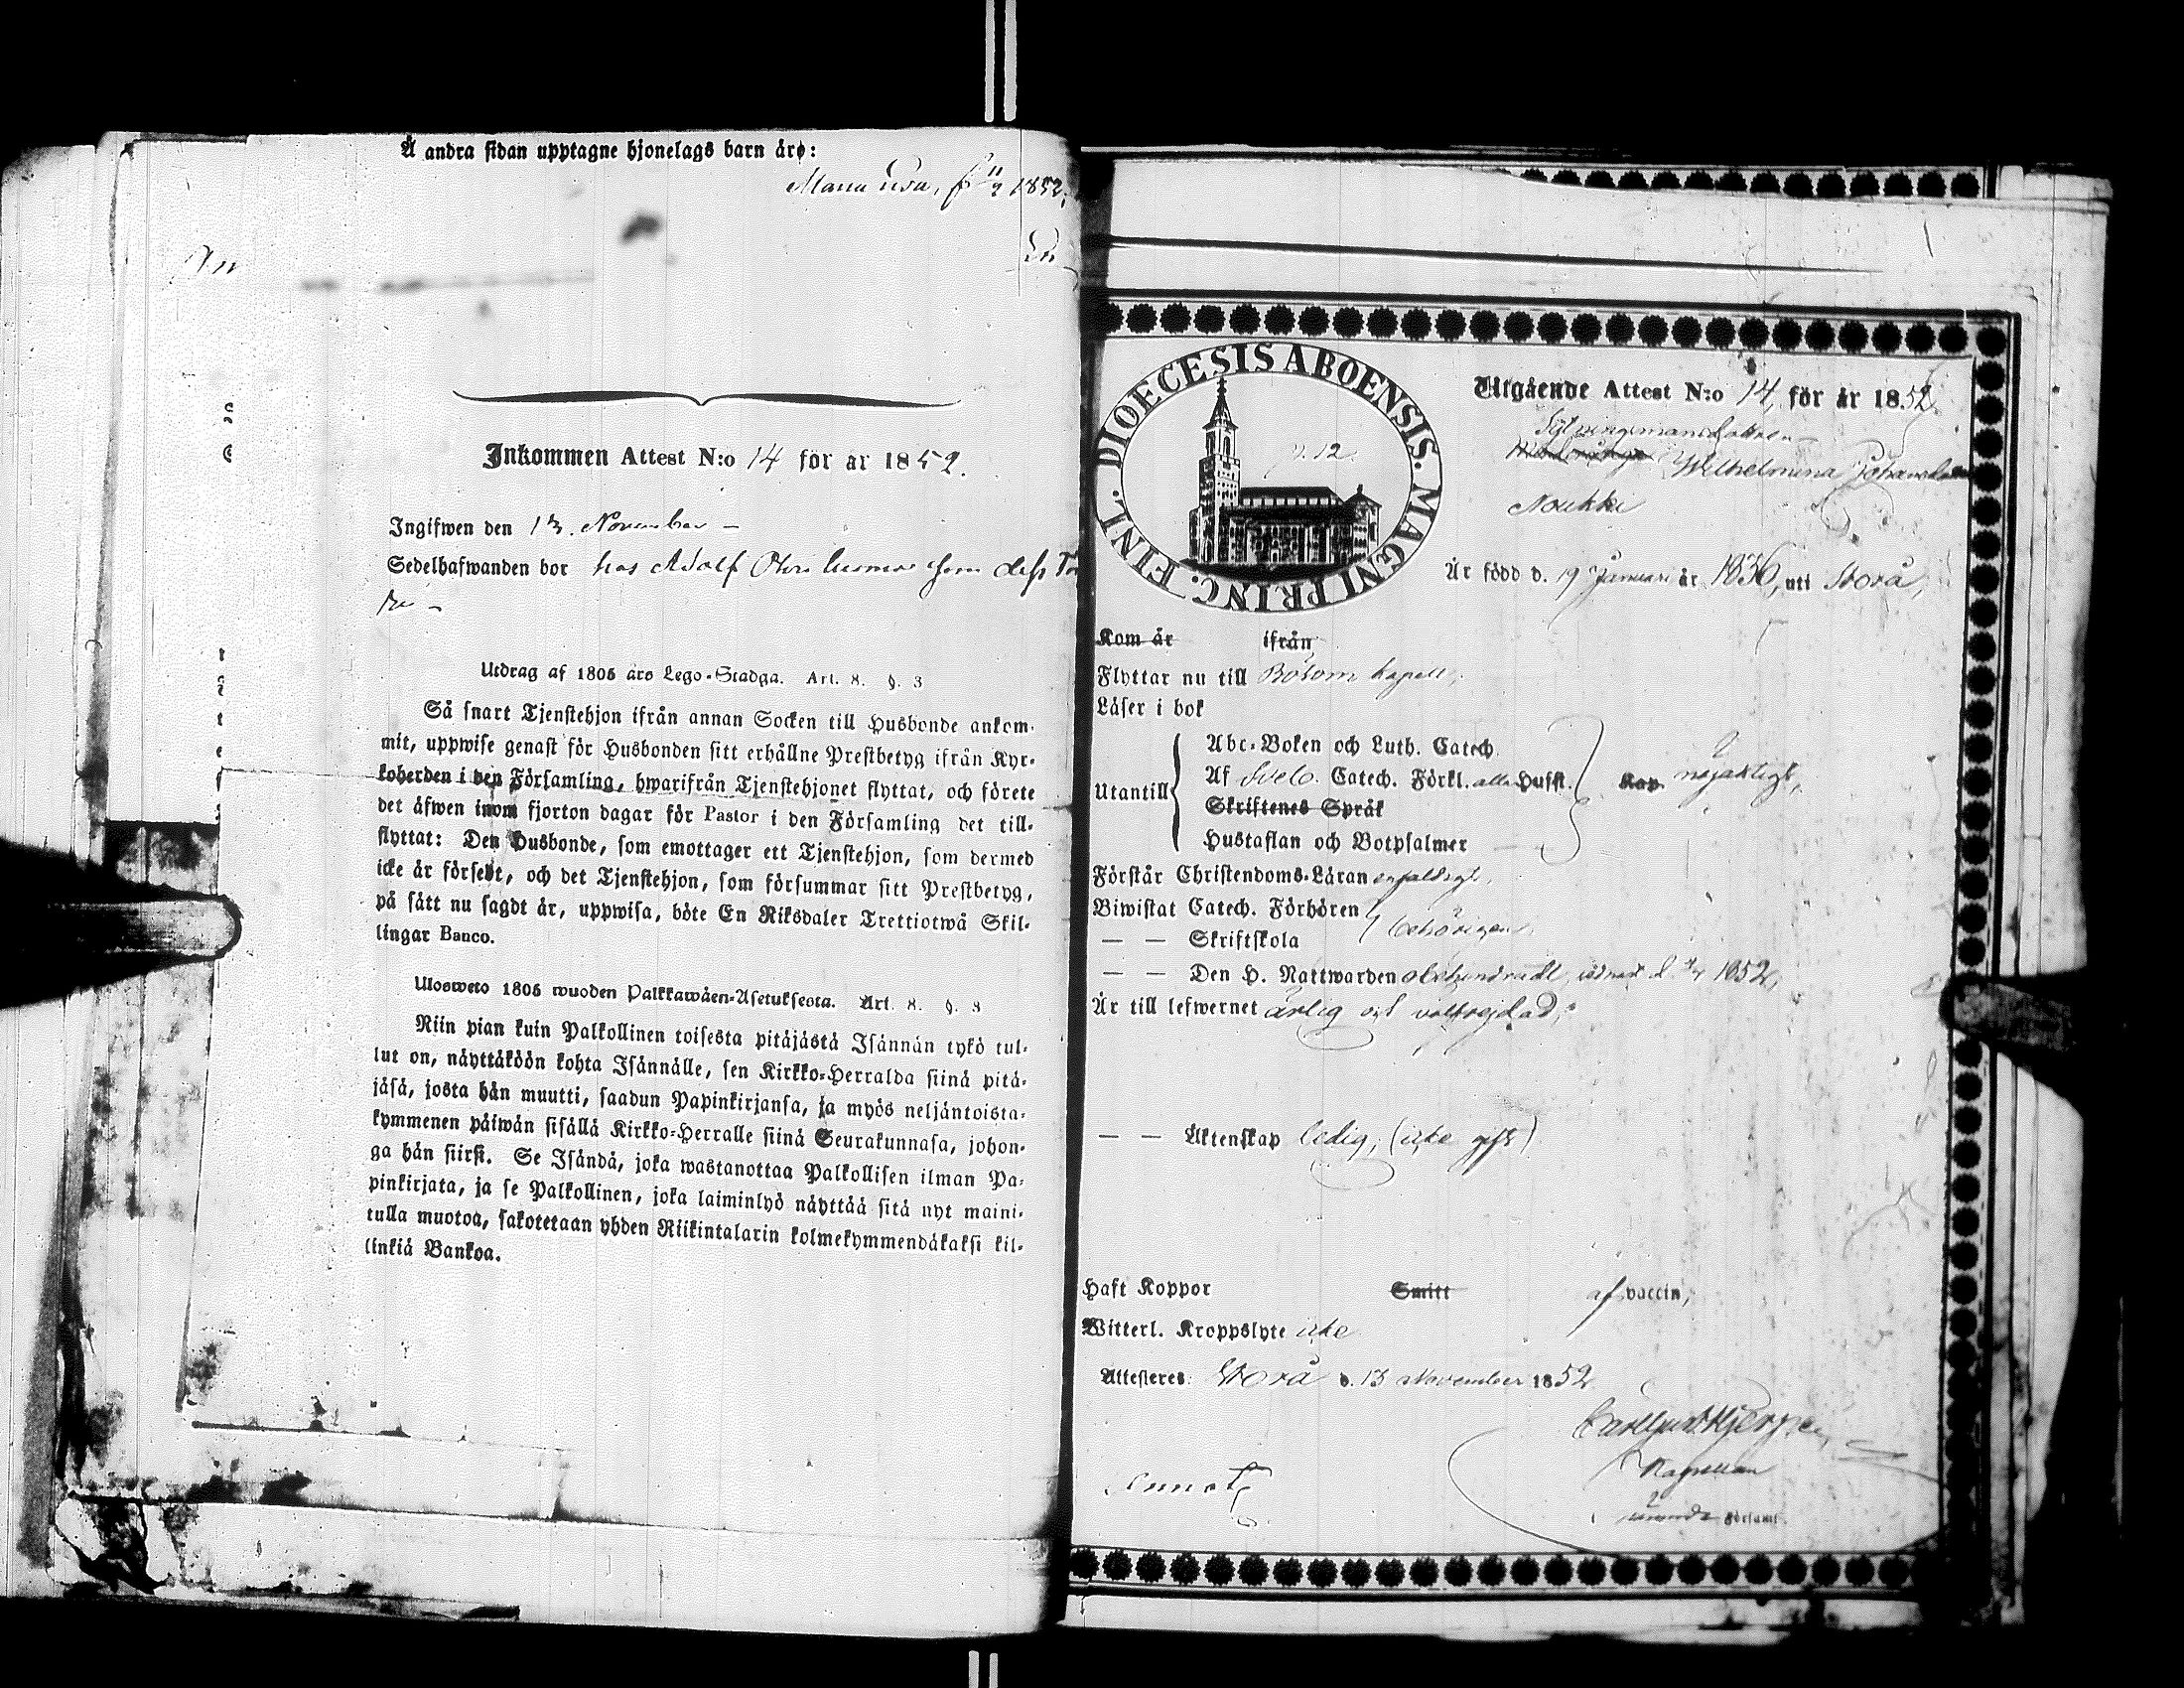 Å andra sidan upptagne hjonelags barn äro:
Maria Lisa, f. 11/9 1852,
Inkommen Attest N:o 14 för år 1852.
Ingifwen den 13. November –
Sedelhafwanden bor hos Adolf
Utdrag af 1805 års Lego-Stadga. Art. 8. §. 3
Så snart Tjenstehjon ifrån annan Socken till Husbonde ankom-
mit, uppwise genast för Husbonden sitt erhållne Prestbetyg ifrån Kyr-
koherden i den Församling, hwarifrån Tjenstehjonet flyttat, och förete
det äfwen inom fjorton dagar för Pastor i den Församling det till-
flyttat: Den Husbonde, som emottager ett Tjenstehjon, som dermed
icke är försedt, och det Tjenstehjon, som försummar sitt Prestbetyg,
på sätt nu sagdt är, uppwisa, böte En Riksdaler Trettiotwå Skil-
lingar Banco.
Ulosweto 1805 wuoden Palkkawäen-Asetuksesta. Art. 8. §. 3
Niin pian kuin Palkollinen toisesta pitäjästä Isännän tykö tul-
lut on, näyttäköön kohta Isännälle, sen Kirkko-Herralda siinä pitä-
jäsä, josta hän muutti, saadun Papinkirjansa, ja myös neljäntoista-
kymmenen päiwän sisällä Kirkko-Herralle siinä Seurakunnasa, johon-
ga hän siirsi. Se Isändä, joka wastanottaa Palkollisen ilman Pa-
pinkirjata, ja se Palkollinen, joka laiminlyö näyttää sitä nyt maini-
tulla muotoa, sakotetaan yhden Riikintalarin kolmekymmendäkaksi kil-
linkiä Bankoa.
DIOECESIS ABOENSIS. MAGNI PRINC. FINL.
p. 12.
Utgående Attest N:o 14, för år 1852
Wilhelmina
Noukki
Är född d. 19 Januari år 1836, uti Storå,
Kom år ifrån
Flyttar nu till Bötom kapell,
Läser i bok
Abc-Boken och Luth. Catech.
Utantill Af Sveb. Catech. Förkl. alla Hufst. Kap. nöjaktigt,
Skriftenes Språk
Hustaflan och Botpsalmer
Förstår Christendoms-Läran enfaldigt,
Biwistat Catech. Förhören
— — Skriftskola behörigen,
— — Den H. Nattwarden obehindradt, 1852,
Är till lefwernet ärlig och välfrejdad;
— — Äktenskap ledig, (icke gift)
Haft Koppor Smitt af vaccin,
Witterl. Kroppslyte icke
Attesteres: Storå d. 13 November 1852
Kapellan
Församl.